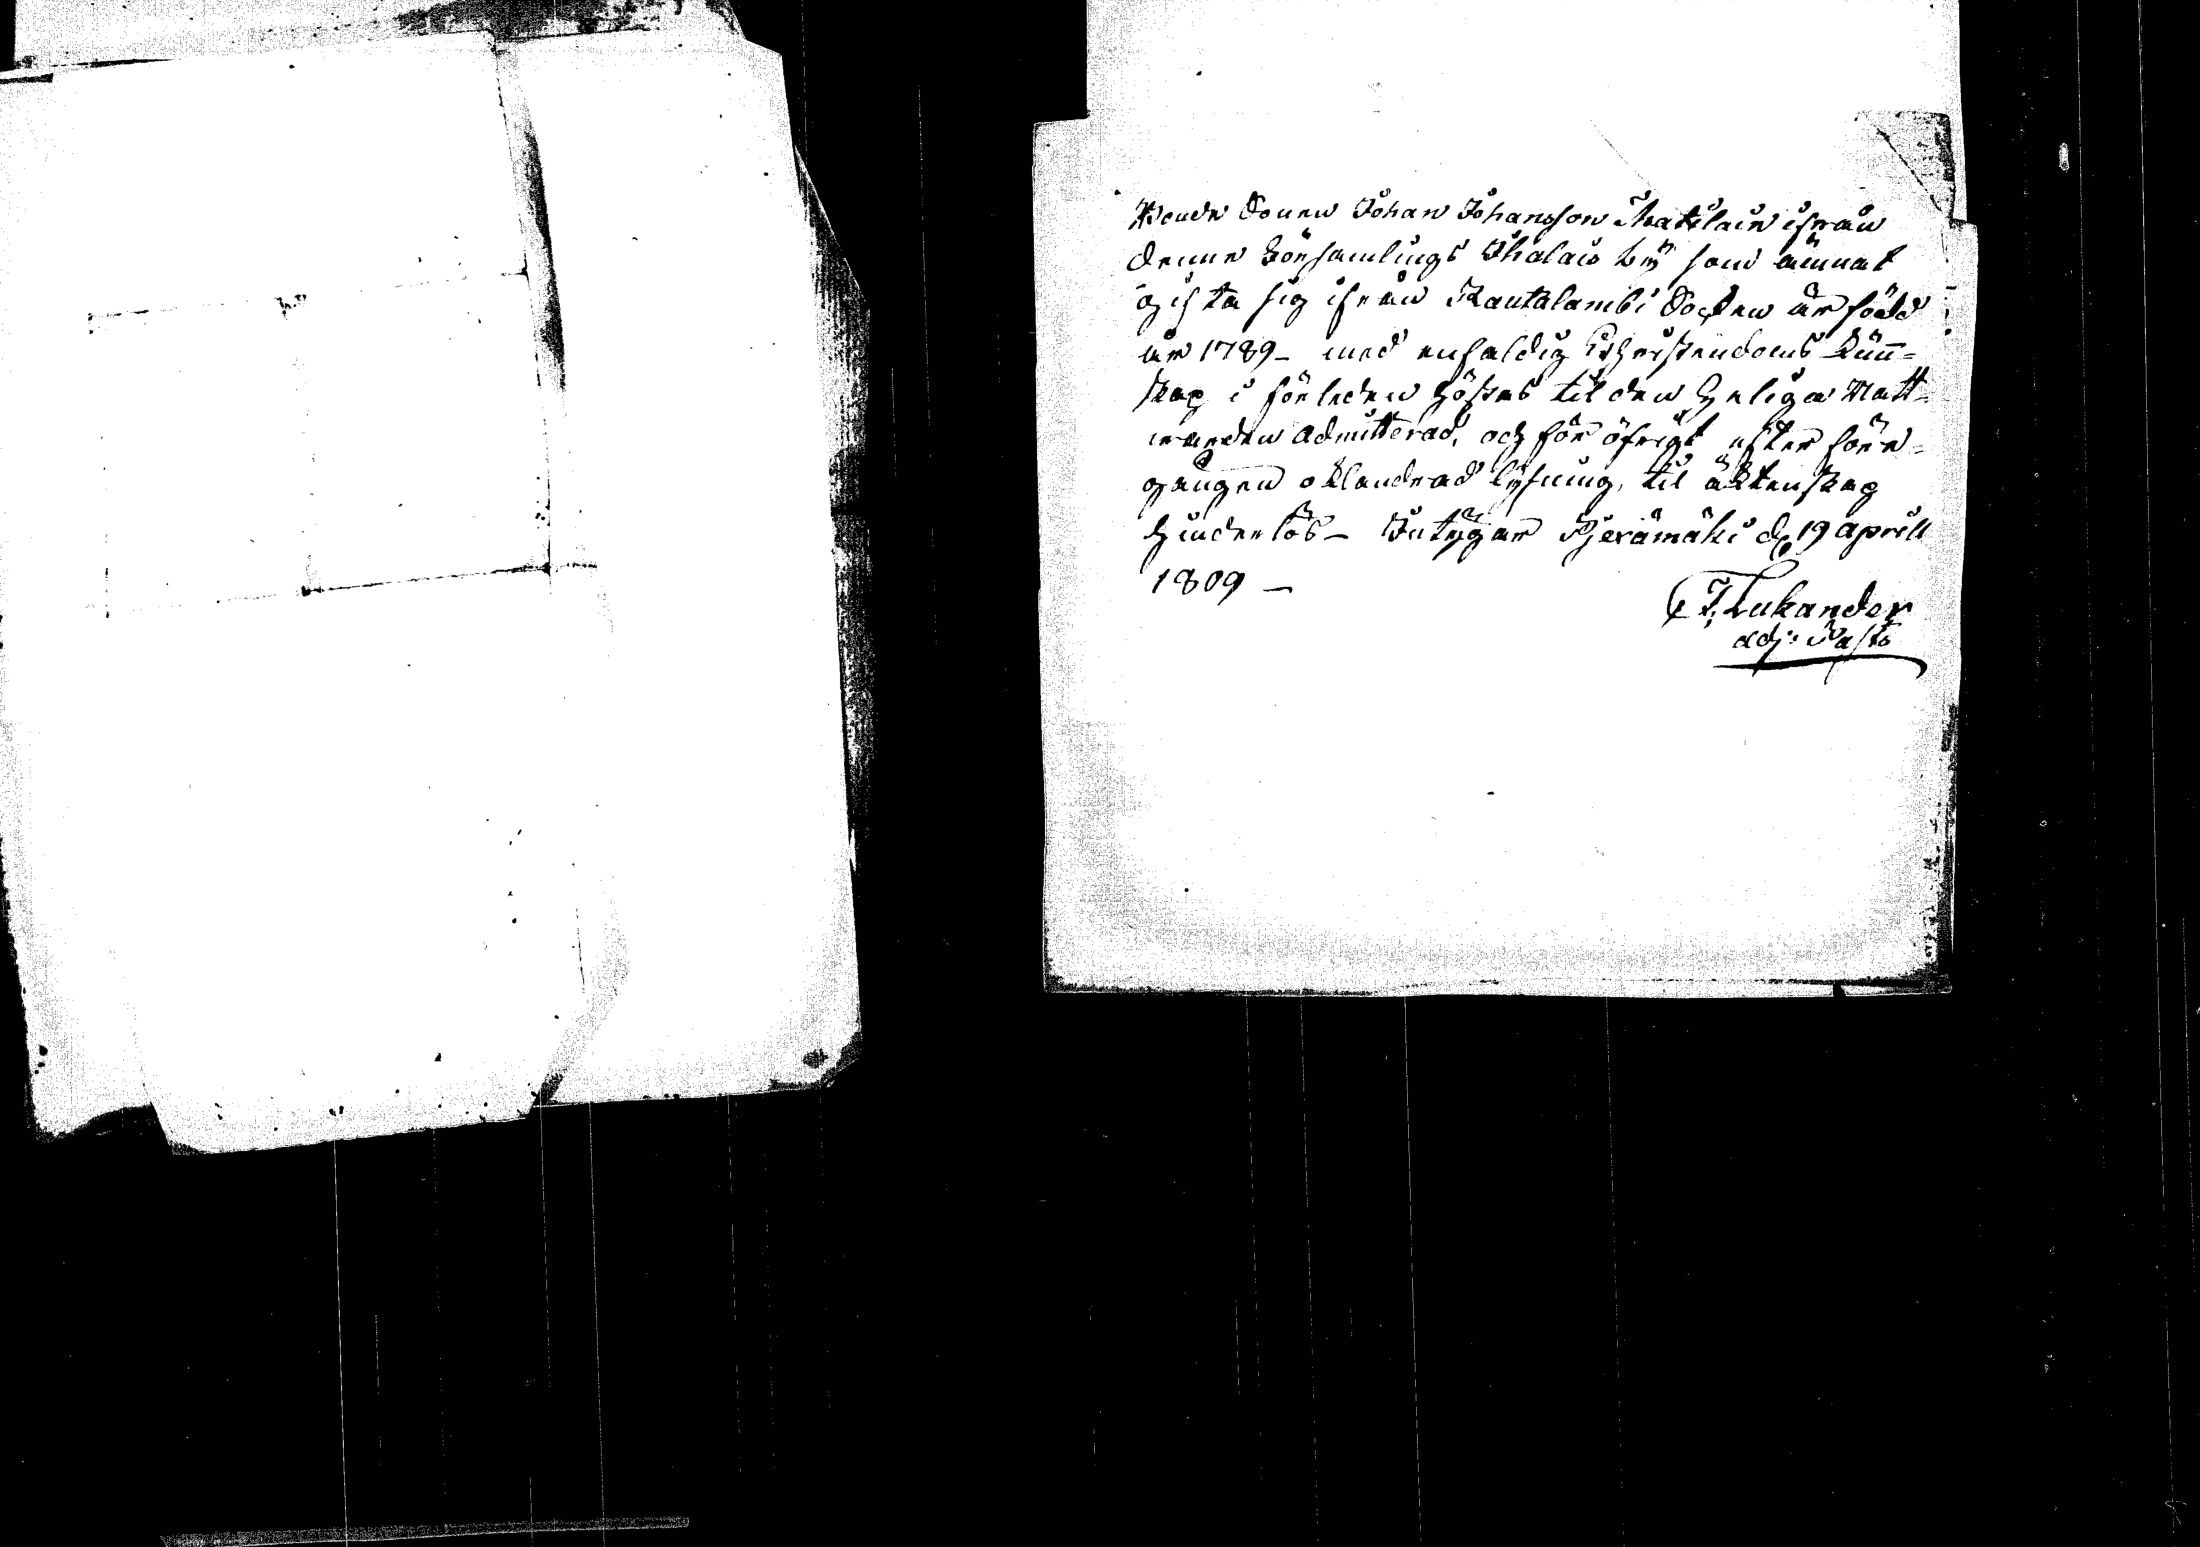 Bonde Sonen Johan Johansson Matilain ifrån
denne Församlings Thalais by som ämnat
gifta sig ifrån Rautalambi Socken är född
år 1789 – med enfaldig Christendoms kun̄=
skap i förleden höstes til den Heliga Natt=
warden admitterad, och för öfrigt efter före=
gången oklandrad lysning, til äktenskap
hinderlös – Intygar Pjexämäki d. 19 aprill
1809 –
T. Lukander
adj: Past: